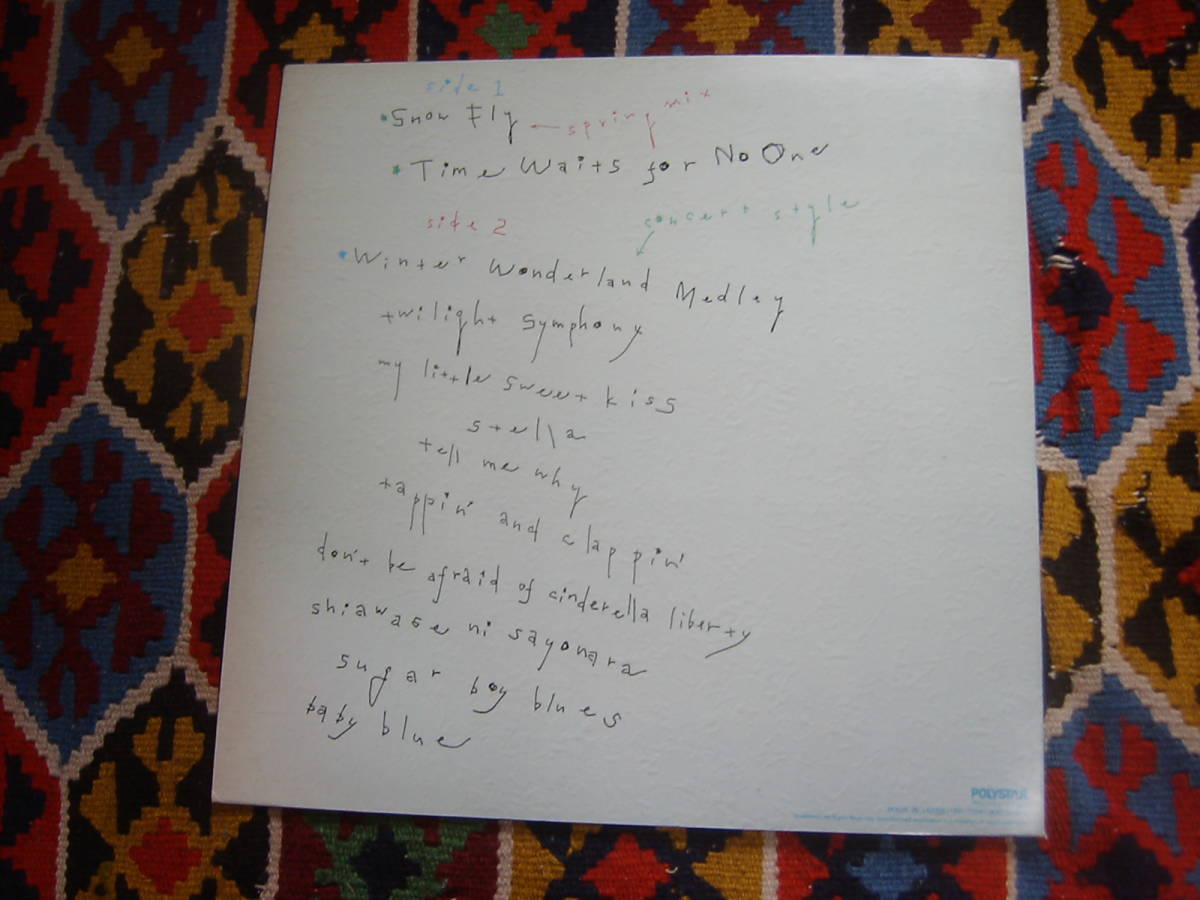 side 1
Snow Fly ← spring mix
Time Waits for No One
side 2
concert style
Winter Wonderland Medley
twilight symphony
my little sweet kiss
stella
tell me why
tappin' and clappin'
don't be afraid of cinderella liberty
shiawase ni sayonara
sugar boy blues
baby blue
POLYSTAR